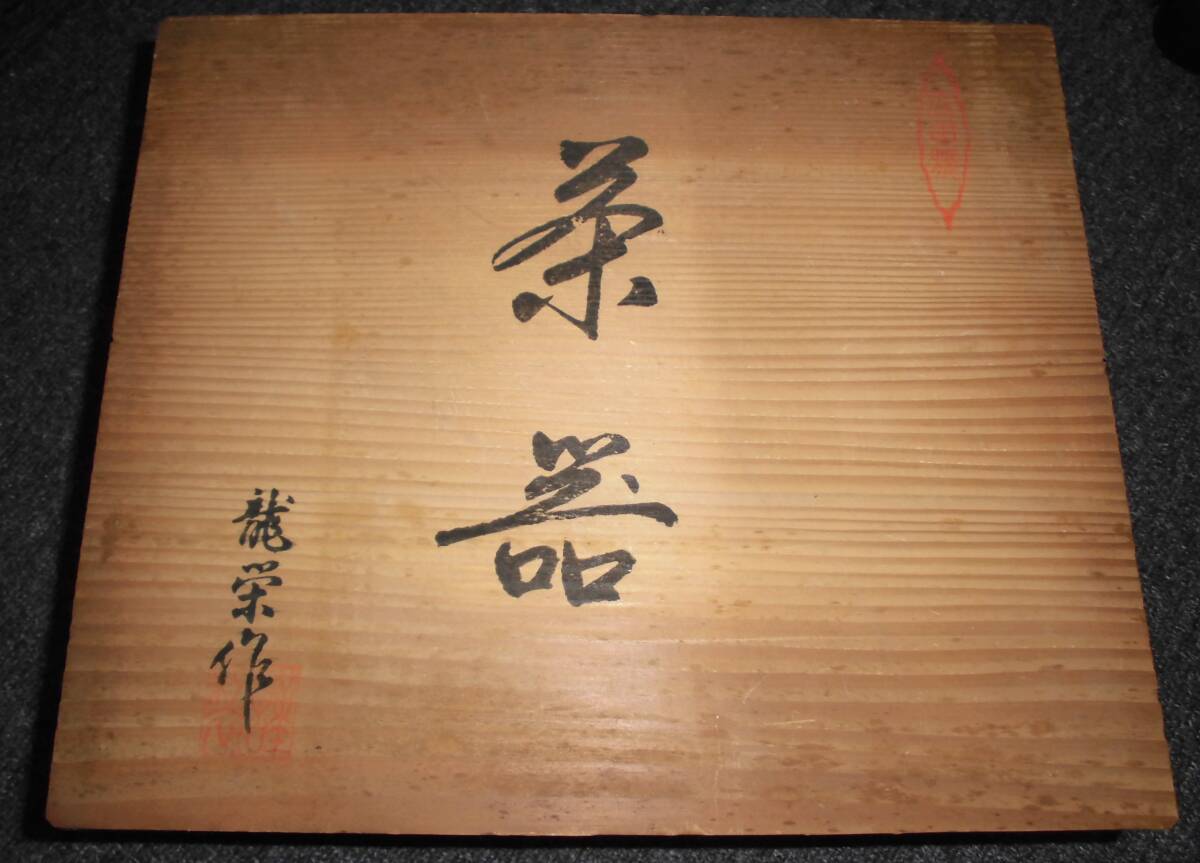 茶器
龍栄作